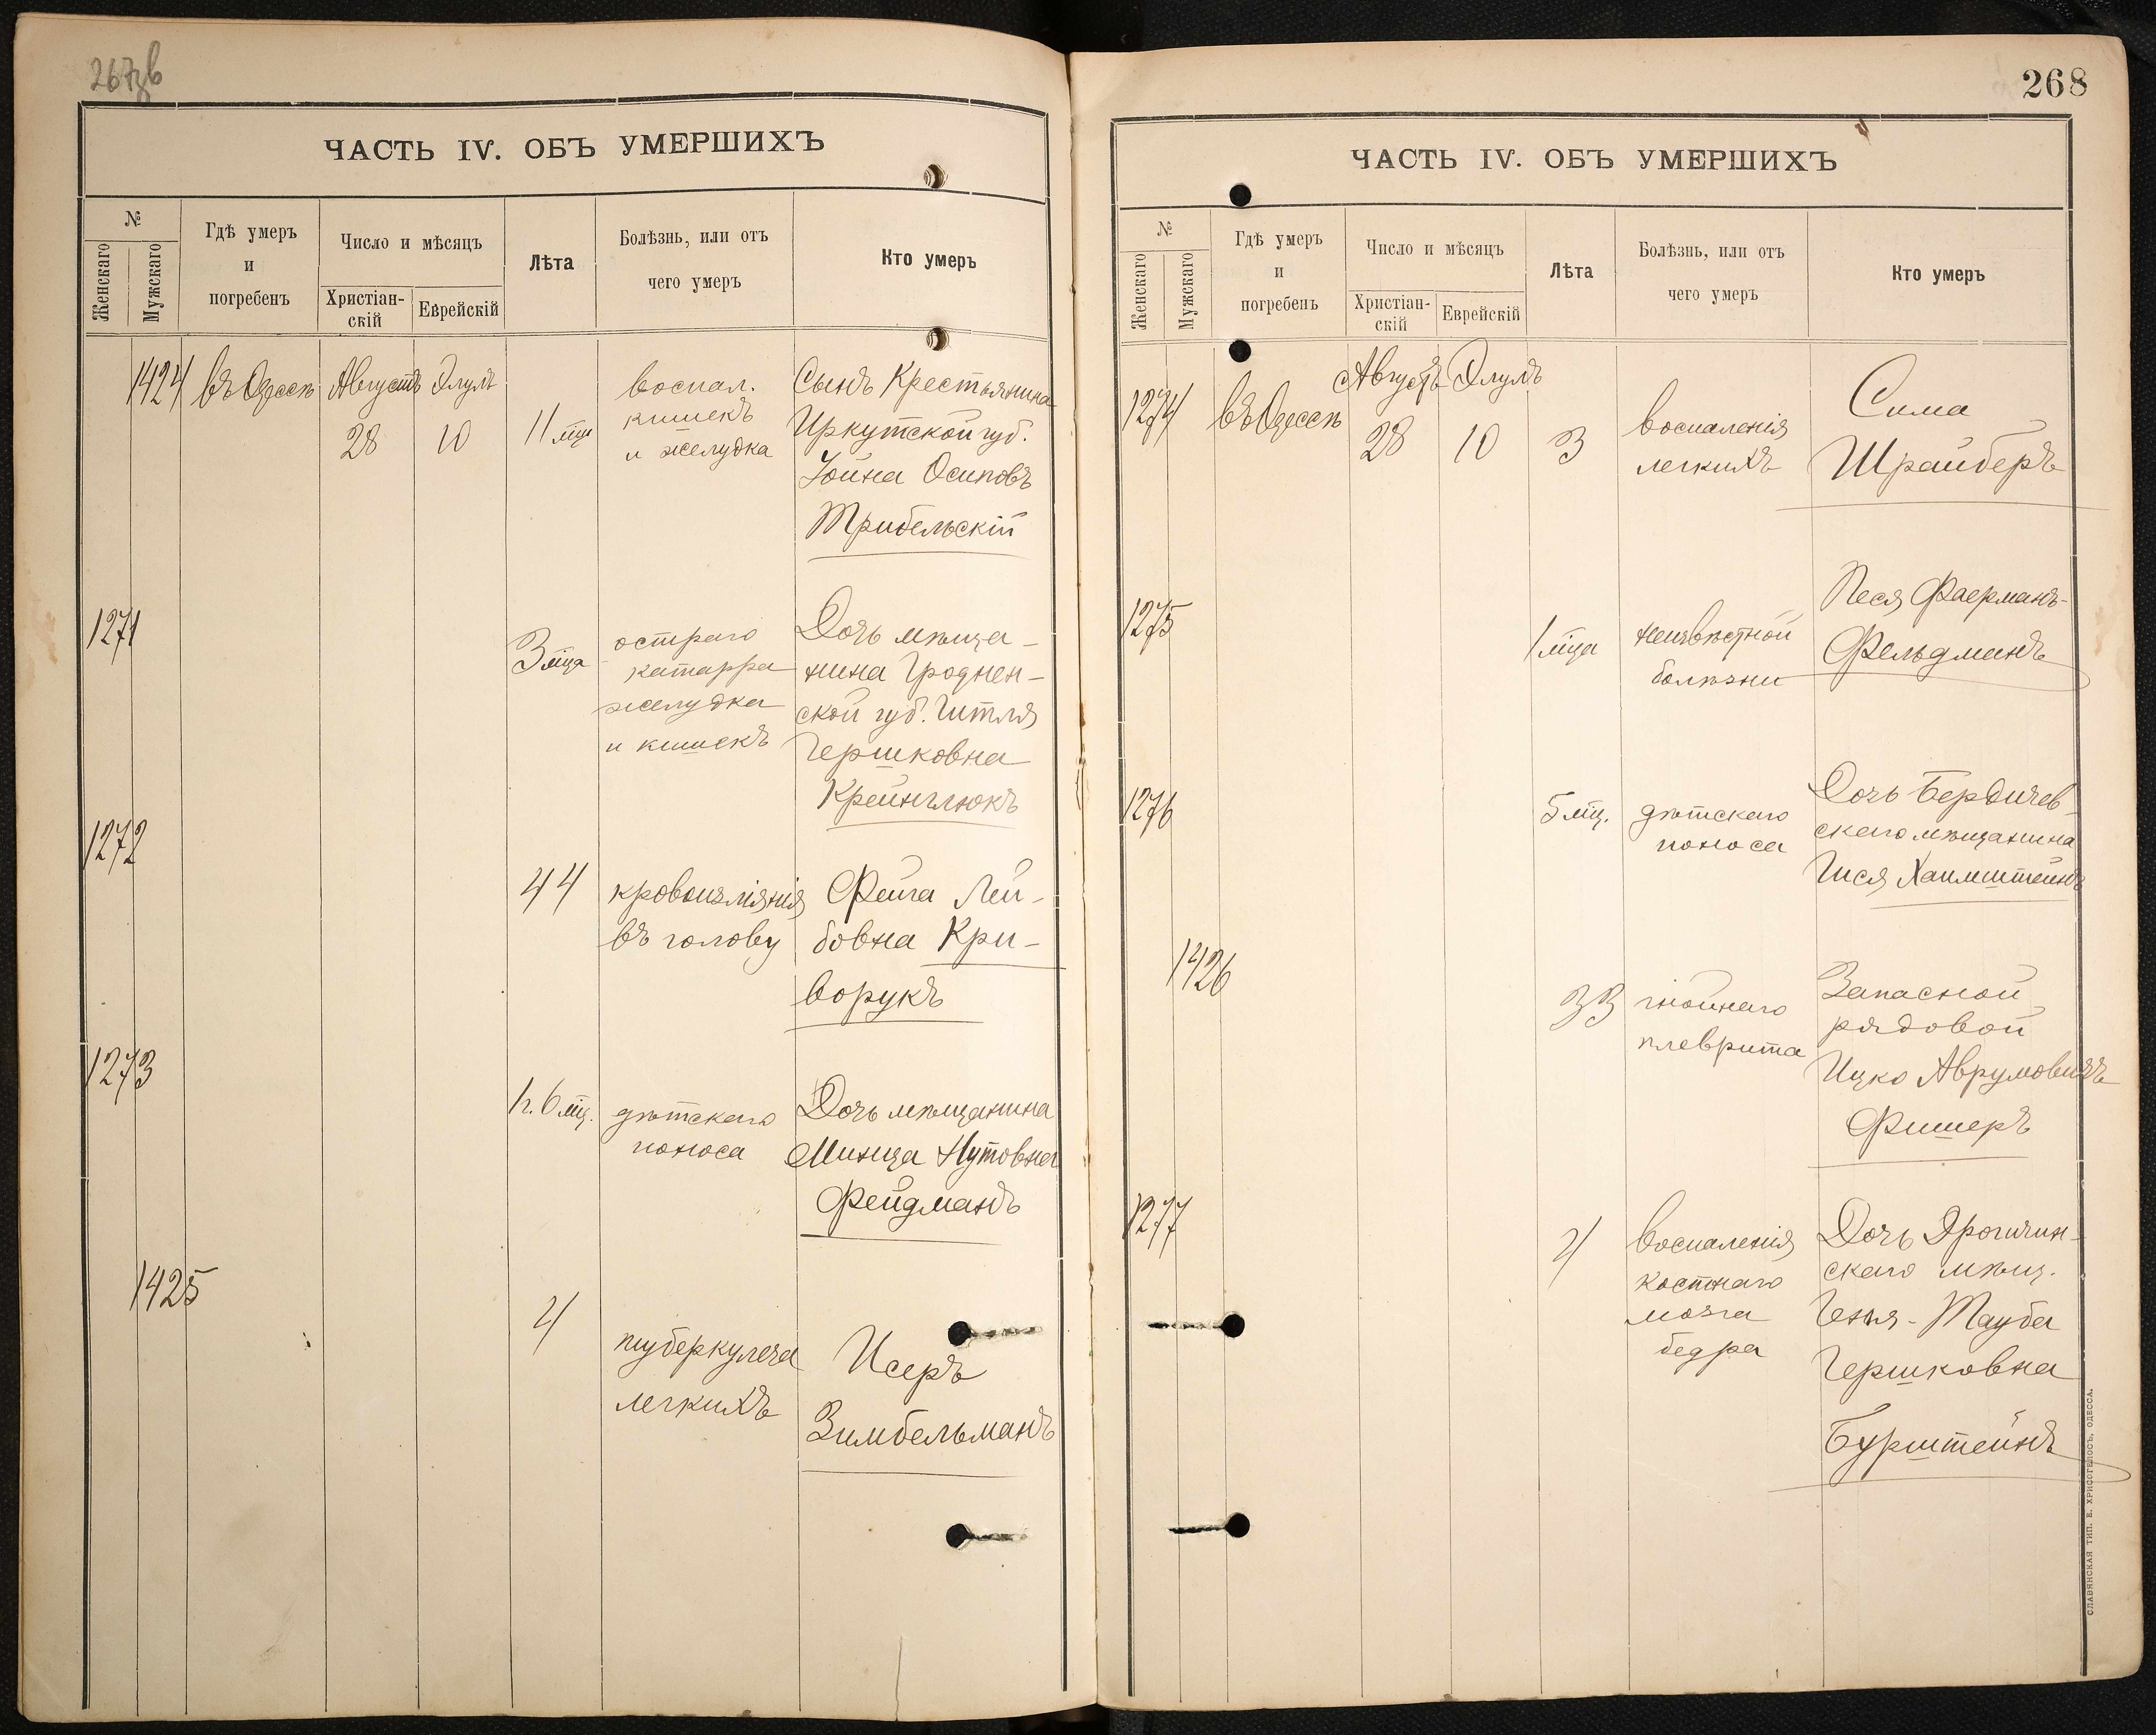 267об
ЧАСТЬ IV. ОБЪ УМЕРШИХЪ
№
Женскаго
Мужскаго
Гдѣ умеръ
и
погребенъ
Число и мѣсяцъ
Христіан-
скій
Еврейскій
Лѣта
Болѣзнь, или отъ
чего умеръ
Кто умеръ
1424 въ Одессѣ Августъ Элулъ
28 10 11 мцъ
воспал.
кишекъ
и желудка
Сынъ Крестьянина
Иркутской губ.
Іойна Осиповъ
Трибельскій
1271
3 мца
остраго
катарра
желудка
и кишекъ
Дочь мѣща-
нина Гроднен-
ской губ. Гитля
Гершковна
Крейнглюкъ
1272
44
кровоизліянія
въ голову
Фейга Лей-
бовна Кри-
ворукъ
1273
1 г. 6 мц.
дѣтскаго
поноса
Дочь мѣщанина
Минца Нутовна
Фейдманъ
1425
4
туберкулеза
легкихъ
Исеръ
Зимбельманъ
268
ЧАСТЬ IV. ОБЪ УМЕРШИХЪ
№
Женскаго
Мужскаго
Гдѣ умеръ
и
погребенъ
Число и мѣсяцъ
Христіан-
скій
Еврейскій
Лѣта
Болѣзнь, или отъ
чего умеръ
Кто умеръ
1274 въ Одессѣ Августъ Элулъ
28 10 3
воспаленія
легкихъ
Сима
Шрайберъ
1275
1 мца
неизвѣстной
болѣзни
Песя Фаерманъ-
Фельдманъ
1276
5 мц.
дѣтскаго
поноса
Дочь Бердичев-
скаго мѣщанина
Гися Хаимштейнъ
1426
33
гнойнаго
плеврита
Запасной
рядовой
Ицко Аврумовичъ
Фишеръ
1277
4
воспаленія
костнаго
мозга
бедра
Дочь Дрогичин-
скаго мѣщ.
Геня-Тауба
Гершковна
Бурштейнъ
СЛАВЯНСКАЯ ТИП. Е. ХРИСОГЕЛОСЪ, ОДЕССА.